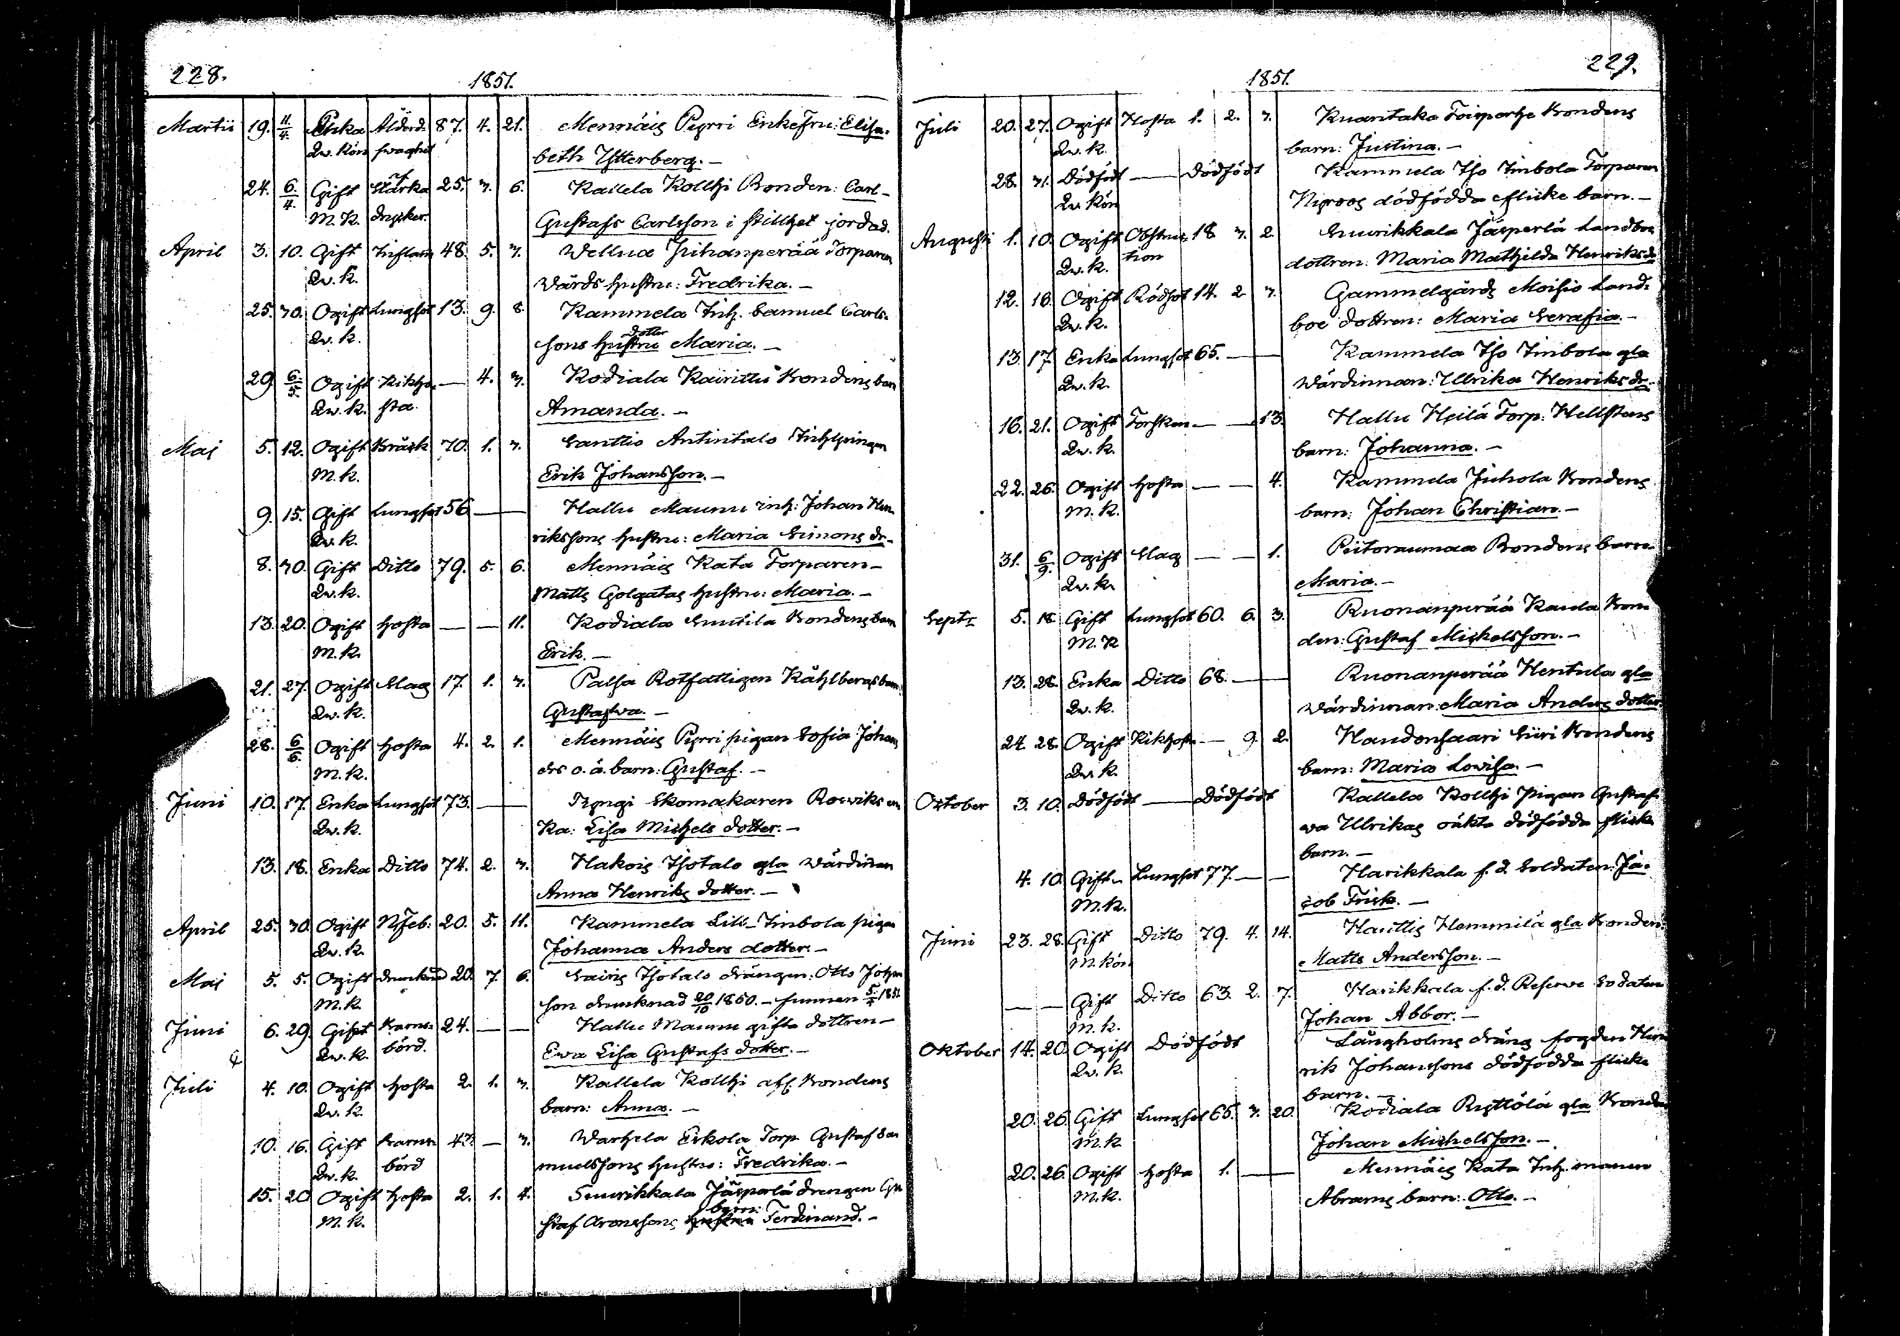 228.
1851.
Martii 19. 11/4. Enka Ålderd. 87. 4. 21. Mennäis Pyrri Enkefru: Elisa-
Qv. kön svaghet beth Ytterberg. –
24. 6/4. Gift Starka 25. 7. 6. Kallela Kolkki Bonden: Carl-
M. K. drycker. Gustafs Carlsson i stillhet jordad.
April 3. 10. Gift Inflam 48. 5. 7. Wellua Juhanperää Torparen
Qv. k. wärds hustru: Fredrika. –
25. 30. Ogift Lungsot 13. 9. 8. Kammela Inh. Samuel Carls-
Qv. k. sons hustru dotter Maria. –
29. 6/5. Ogift Kikho- — 4. 7. Kodiala Bondens barn
Qv. k. sta. Amanda. –
Maj 5. 12. Ogift Bråck 70. 1. 7. Santtio Antintalo Inhysingen
M. k. Erik Johansson. –
9. 15. Gift Lungsot 56 — — Hallu Maunu inh: Johan Hen
Qv. k. rikssons hustru: Maria Simons dr. –
8. 30. Gift Ditto 79. 5. 6. Mennäis Kata Torparen –
Qv. k. Matts Golgatas hustru: Maria. –
13. 20. Ogift Hosta — — 11. Kodiala Smitila Bondens barn
M. k. Erik. –
21. 27. Ogift Slag 17. 1. 7. Palsa Rotfattigen Kåhlbergs barn
Qv. k. Gustafva. –
28. 6/6. Ogift Hosta 4. 2. 1. Mennäis Pyrri pigan Sofia Johans
M. k. drs o. ä. barn: Gustaf. –
Juni 10. 17. Enka Lungsot 73. — — Skomakaren en
Qv. k. ka: Lisa Michels dotter. –
13. 18. Enka Ditto 74. 2. 7. Hakois Isotalo gla wärdinnan
Anna Henriks dotter. –
April 25. 30. Ogift N.Feb: 20. 5. 11. Kammela Lill-Imbola pigan
Qv. k. Johanna Anders dotter. –
Maj 5. 5. Ogift Drunknad 20. 7. 6. Sairis Isotalo drängen: Otto Johan
M. k. son drunknad 20/10 1850. – funnen 5/5 1851.
Juni 6. 29. Gift Barns- 24. — — Hallu Maunu gifta dottren –
Qv. k. börd. Ewa Lisa Gustafs dotter. –
Juli 4. 10. Ogift Hosta 2. 1. 7. Kallela Kolkki afl. Bondens
Qv. k. barn: Anna. –
10. 16. Gift Barns- 43. — 7. Warhela Eskola Torp. Gustaf Sa
Qv. k. börd muelssons hustru: Fredrika. –
15. 20. Ogift Hosta 2. 1. 4. Suurikkala Jäsperlä drängen Gu
M. k. staf Aronssons hustru barn: Ferdinand. –
229.
1851.
Juli 20. 27. Ogift Hosta 1. 2. 7. Kuantaka Bondens
Qv. k. barn: Justina. –
28. 31. Dödfödt — Dödfödt Kammela Iso Imbola Torparen
Qv. kön Nyroos dödfödda flicke barn. –
Augusti 1. 10. Ogift Obstruc- 18 7. 2. Suurikkala Jäsperlä Landboe
Qv. k. tion dottren: Maria Mathilda Henriksdr
12. 18. Ogift Rödsot 14. 2 7. Gammelgårds Moisio Land-
Qv. k. boe dottren: Maria Serafia. –
13. 17. Enka Lungsot 65. — — Kammela Iso Imbola gla
Qv. k. Wärdinnan: Ulrika Henriks dr. –
16. 21. Ogift Torsken — — 13. Hallu Heilä Torp: Hellstens
Qv. k. barn: Johanna. –
22. 26. Ogift Hosta — — 4. Kammela Juhola Bondens
M. k. barn: Johan Christian. –
31. 6/9. Ogift Slag — — 1. Riitoraumaa Bondens barn
Qv. k. Maria. –
Septr 5. 18. Gift Lungsot 60. 6. 3. Ruonanperää Kaula Bon-
M. K den: Gustaf Mickelsson. –
13. 28. Enka Ditto 68. — — Ruonanperää Hentula gla
Qv. k. wärdinnan: Maria Anders dotter.
24. 28. Ogift Kikhosta — 9. 2. Haudonsaari Siiri Bondens
Qv. k. barn: Maria Lovisa. –
Oktober 3. 10. Dödfödt — Dödfödt Kallela Kolkki pigan Gustaf-
va Ulrikas oäkta dödfödda flicke
barn. –
4. 10. Gift Lungsot 77. — — Harikkala f. d. Soldaten: Ja-
M. k. cob Frisk. –
Juni 23. 28. Gift Ditto 79. 4. 14. Hemmilä gla Bonden:
M. kön Matts Andersson. –
— — Gift Ditto 63. 2. 7. Harikkala f. d. Reserve Soldaten
M. k. Johan Abbor. –
Oktober 14. 20. Ogift Dödfödt Långholms dräng fogden Hen
Qv. k. rik Johanssons dödfödda flicke
barn. –
20. 26. Gift Lungsot 65. 7. 20. Kodiala Ryttölä gla Bonden
M. k Johan Michelsson. –
20. 26. Ogift Hosta 1. — Mennäis Kata Inh. mannen
M. k. Abrams barn: Otto. –